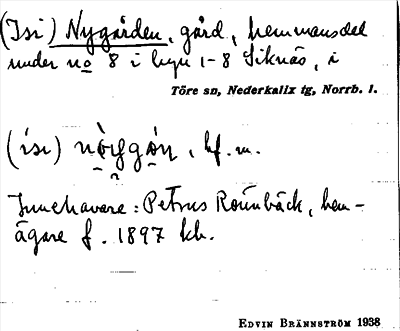 (Isi) Nygården, gård, hemmansdel
under no 8 i byn 1-8 Siknäs, i
Töre sn, Nederkalix tg, Norrb. l.
(ísı) nò̱ygȯ̱n, hf. m.
Innehavare: Petrus Rönbäck, hem-
ägare f. 1897 kb.
EDVIN BRÄNNSTRÖM 1938